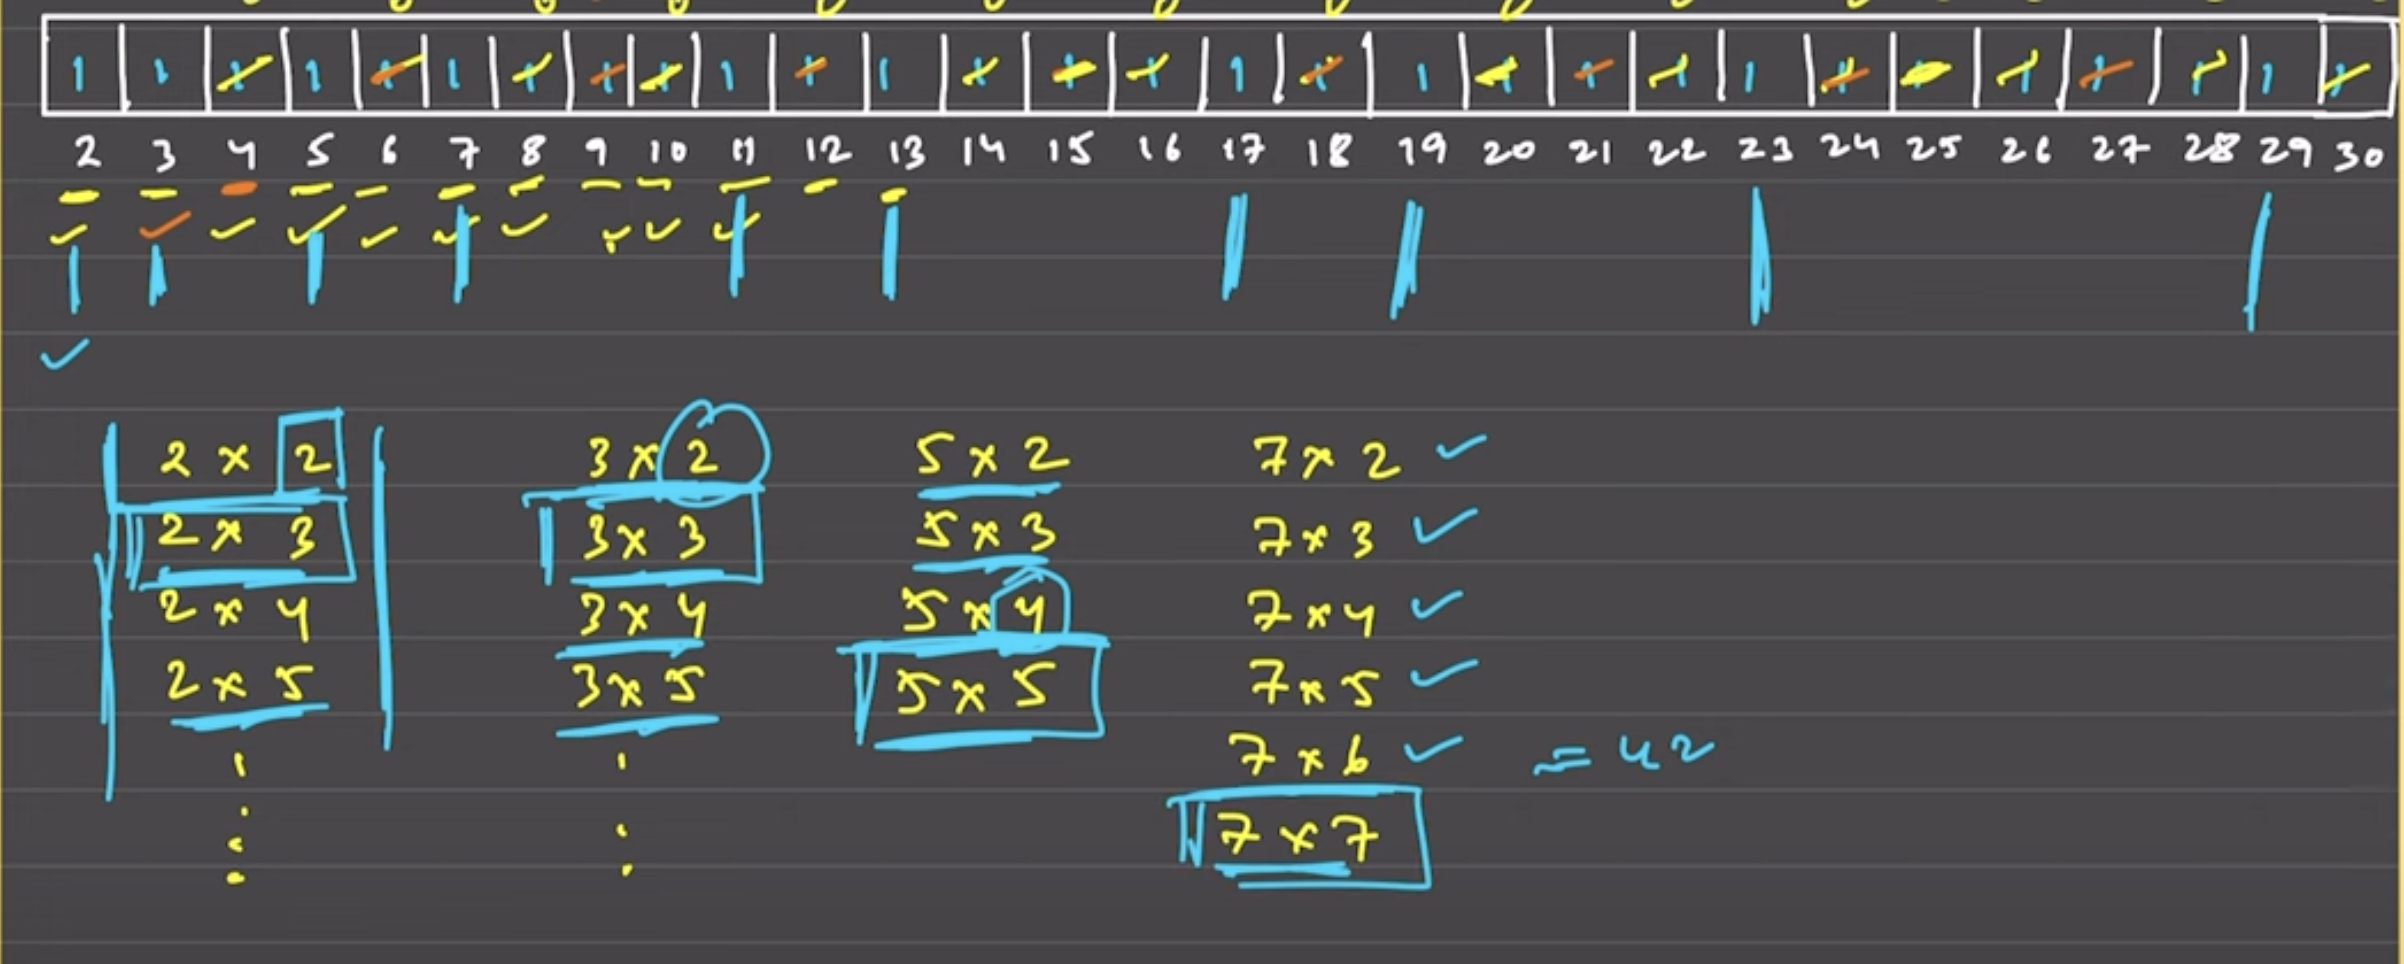 1 1 1 1 1 1 1 1 1 1 1 1 1 1 1 1 1 1 1 1 1 1 1 1 1 1 1 1 1
2 3 4 5 6 7 8 9 10 11 12 13 14 15 16 17 18 19 20 21 22 23 24 25 26 27 28 29 30
2 × 2 3 × 2 5 × 2 7 × 2
2 × 3 3 × 3 5 × 3 7 × 3
2 × 4 3 × 4 5 × 4 7 × 4
2 × 5 3 × 5 5 × 5 7 × 5
7 × 6 = 42
7 × 7